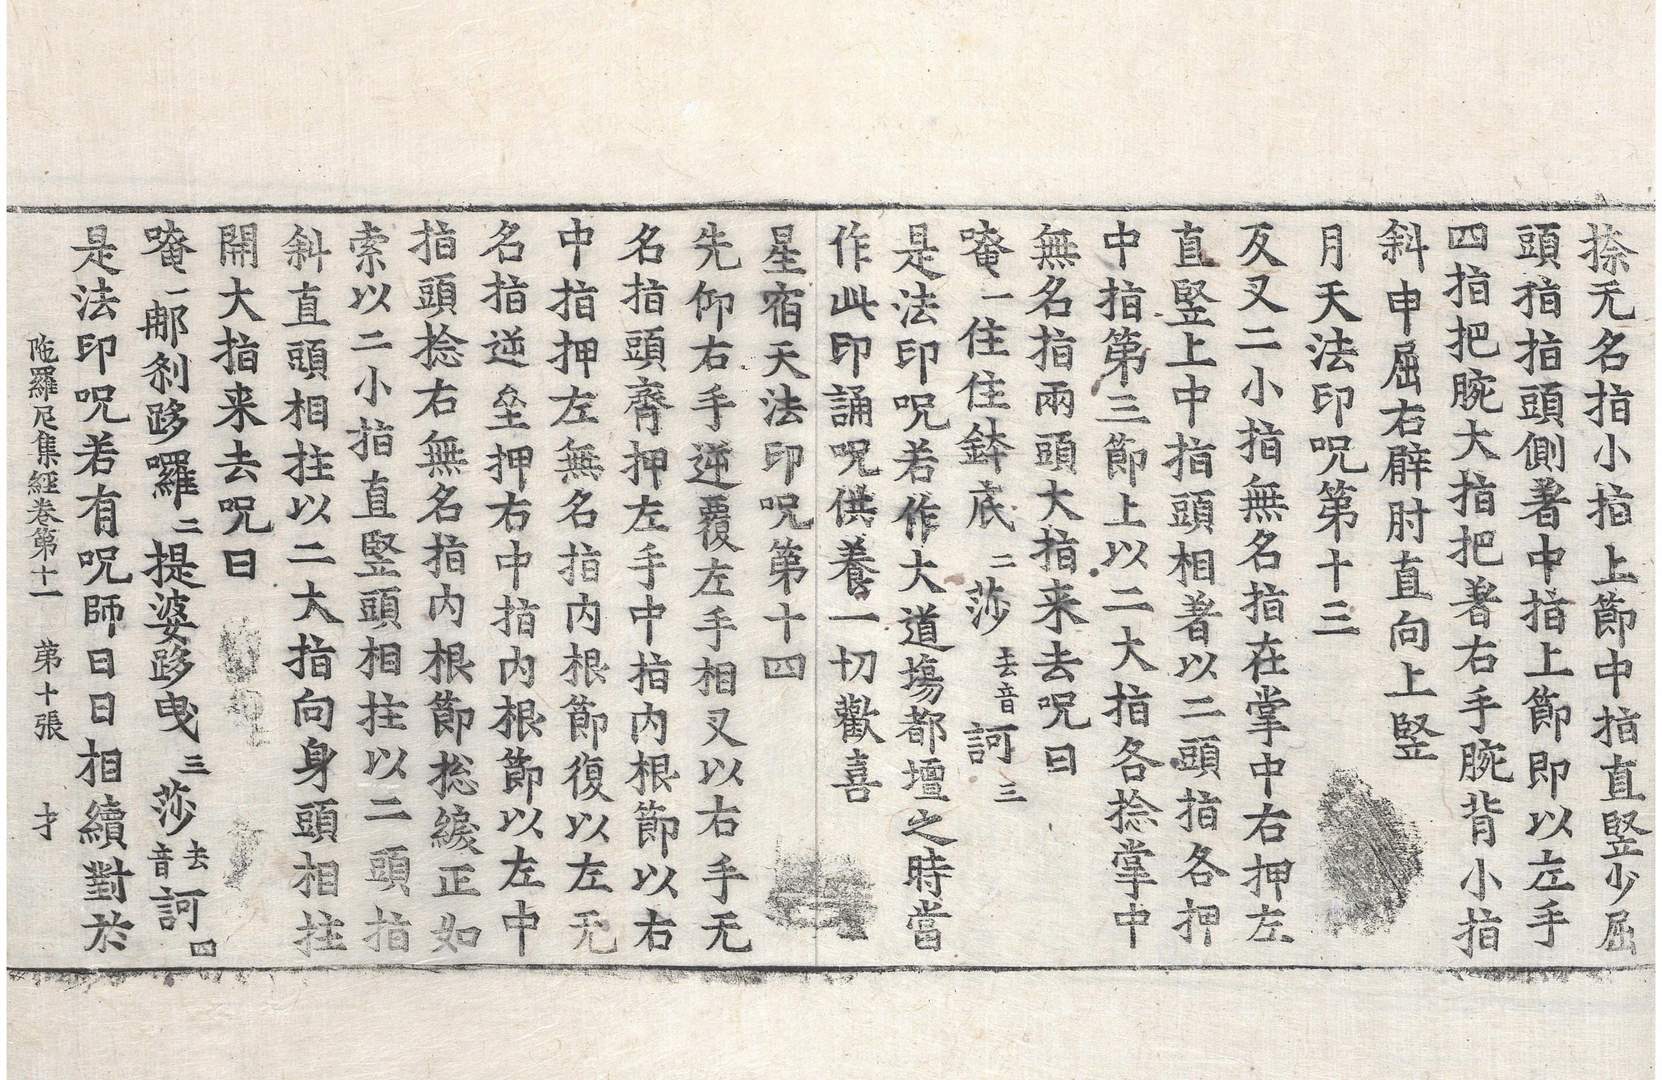 捺无名指小指上節中指直竪少屈
頭指指頭側著中指上節即以左手
四指把腕大指把著右手腕背小指
斜申屈右臂肘直向上竪
月天法印呪第十三
反叉二小指無名指在掌中右押左
直竪上中指頭相著以二頭指各押
中指第三節上以二大指各捻掌中
無名指兩頭大指来去呪曰
唵一住住鉢底二莎去音訶三
是法印呪若作大道塲都壇之時當
作此印誦呪供養一切歡喜
星宿天法印呪第十四
先仰右手逆覆左手相叉以右手无
名指頭齊押左手中指内根節以右
中指押左無名指内根節復以左无
名指逆壘押右中指内根節以左中
指頭捻右無名指内根節捴緩正如
索以二小指直竪頭相拄以二頭指
斜直頭相拄以二大指向身頭相拄
開大指来去呪曰
唵一那剎跢囉二提婆跢曳三莎去音訶四
是法印呪若有呪師日日相續對於
陁羅尼集經卷第十一 第十張 才